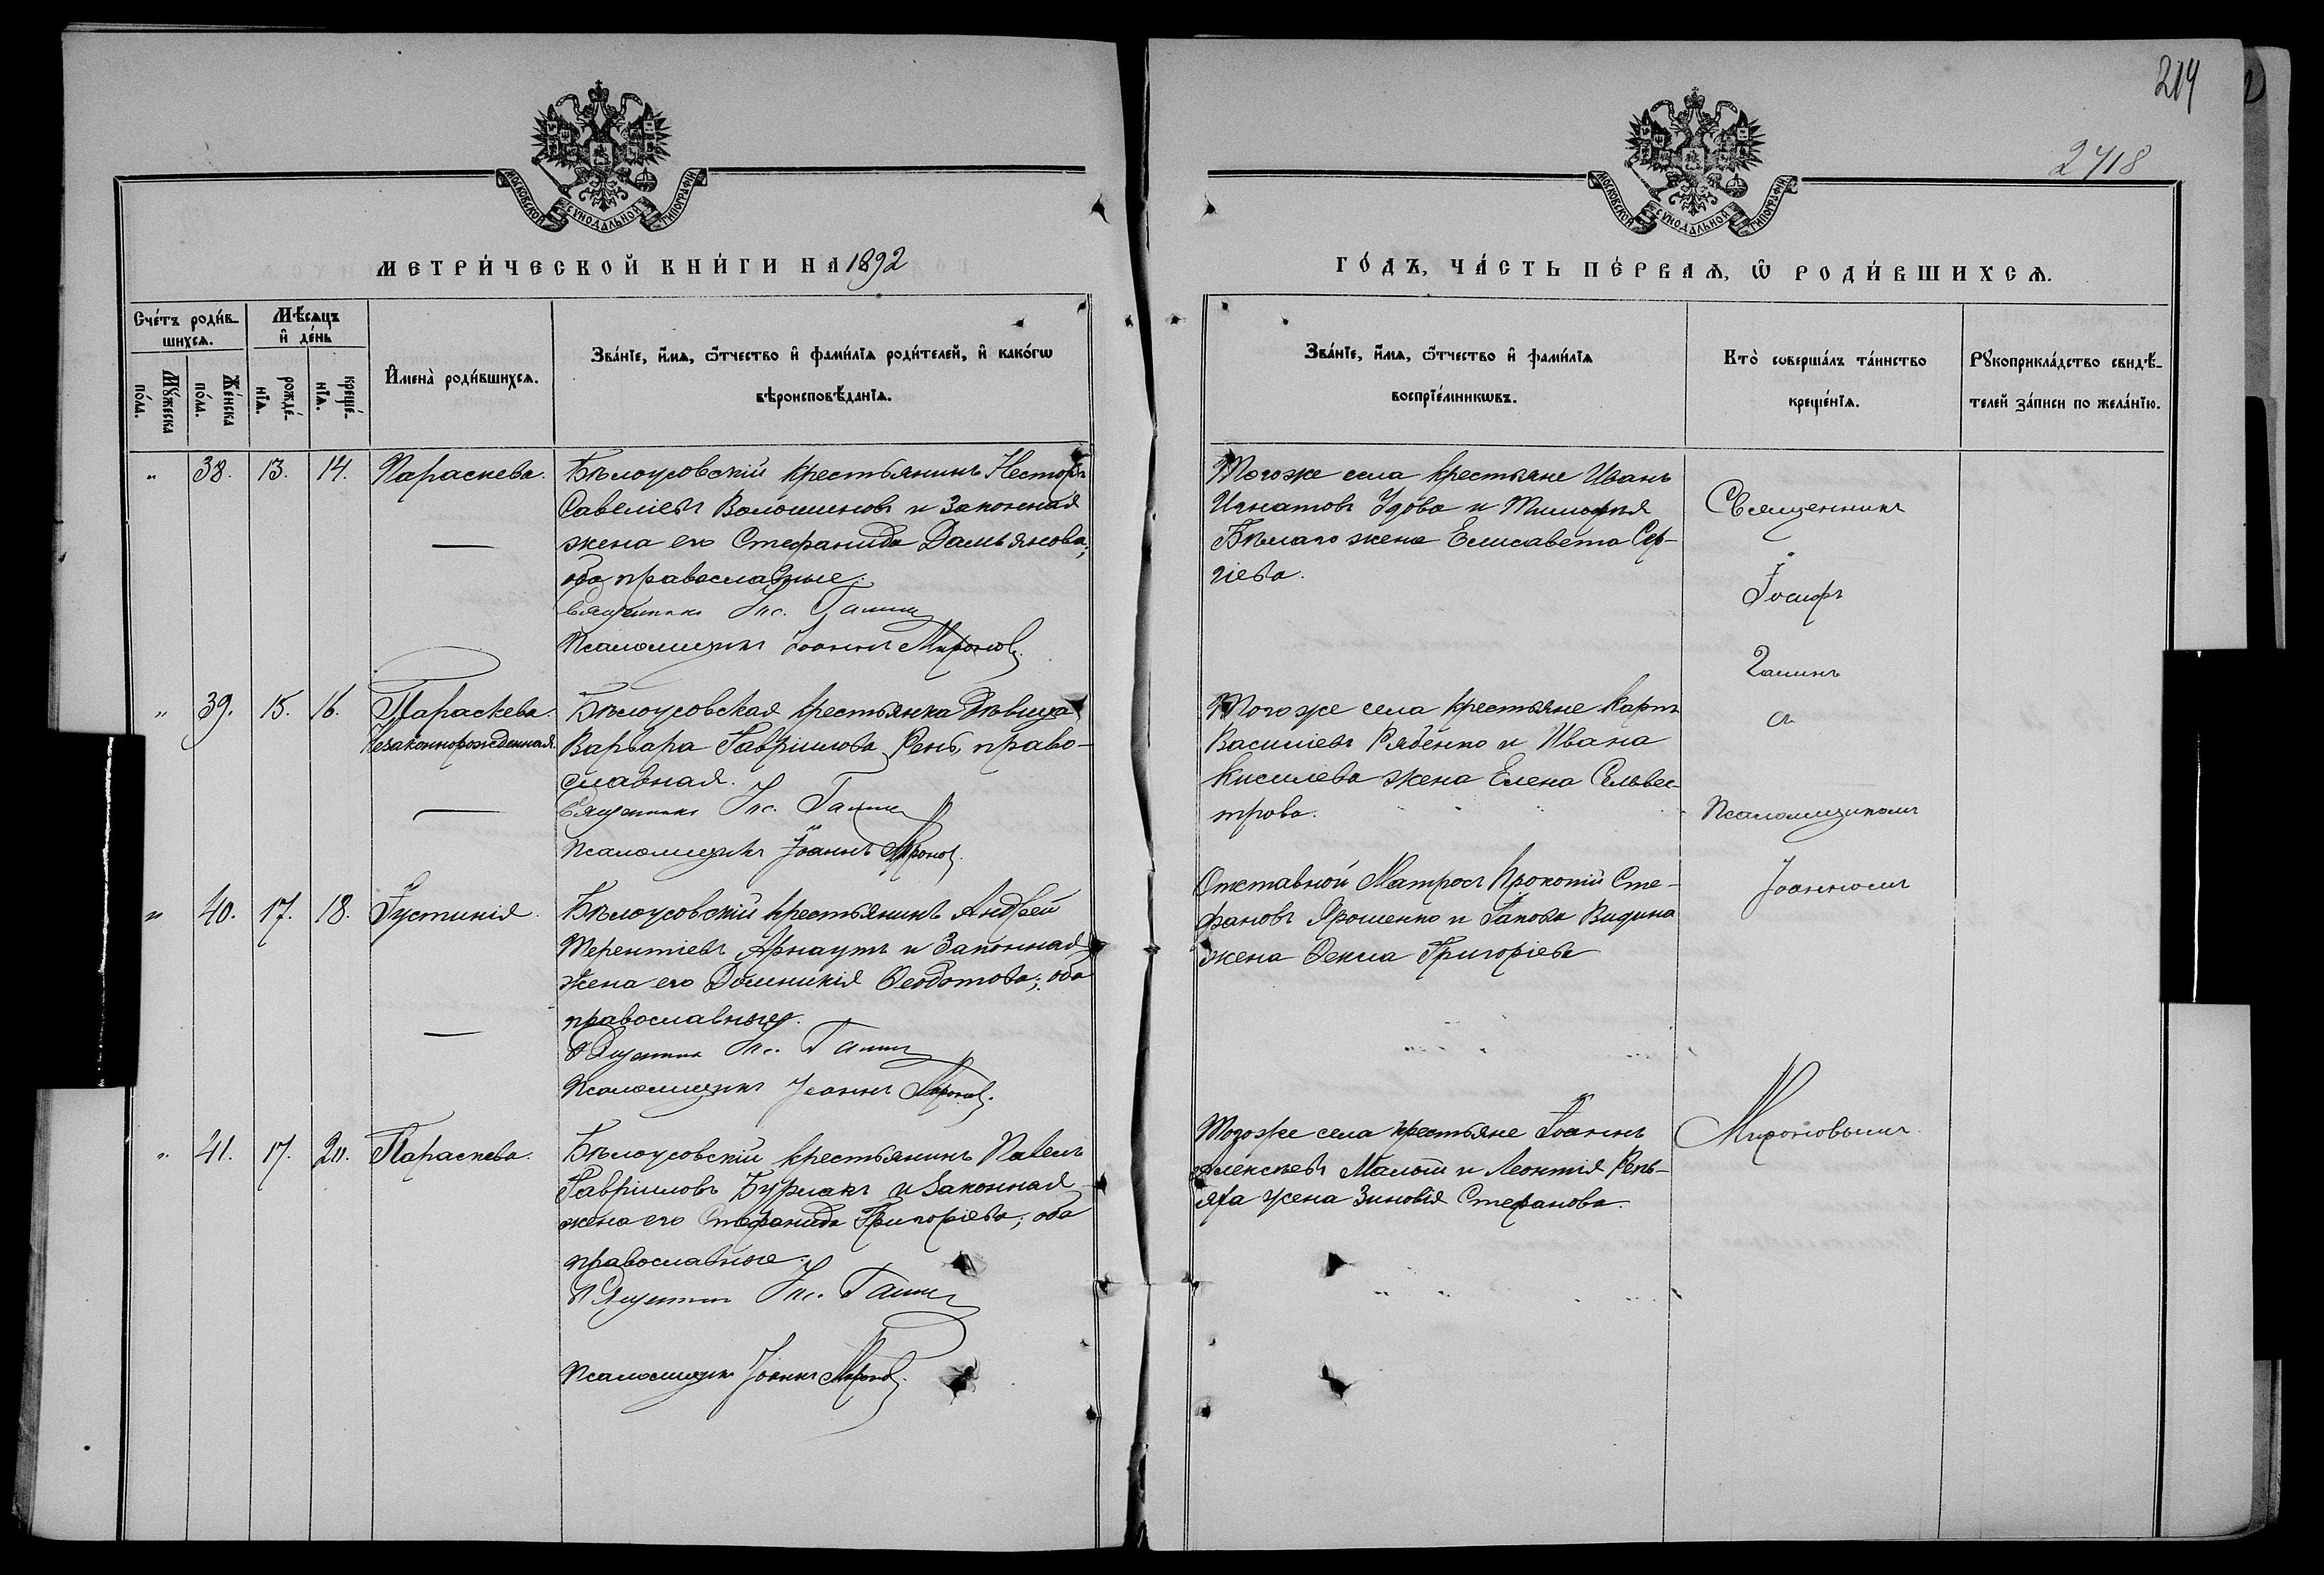 214
2718
МОСКОВСКОЙ СѴНОДАЛЬНОЙ ТИПОГРАФІИ
МОСКОВСКОЙ СѴНОДАЛЬНОЙ ТИПОГРАФІИ
МЕТРИ́ЧЕСКОЙ КНИ́ГИ НА 1892
ГО́ДЪ, ЧА́СТЬ ПЕ́РВАѦ, Ѡ҆ РОДИ́ВШИХСѦ.
Сче́тъ роди́в-
шихсѧ.
Мѣ́сѧцъ
и҆ де́нь
Мꙋ́жеска
по́ла.
Же́нска
по́ла.
рожде́-
нїѧ.
креще́-
нїѧ.
И҆мена̀ роди́вшихсѧ.
Зва́нїе, и҆́мѧ, ѻ҆́тчество и҆ фами́лїѧ роди́телей, и҆ како́гѡ
вѣроисповѣ́данїѧ.
Зва́нїе, и҆́мѧ, ѻ҆́тчество и҆ фами́лїѧ
воспрїе́мникѡвъ.
Кто̀ соверша́лъ та́инство
креще́нїѧ.
Рꙋкоприкла́дство свидѣ́-
телей за́писи по жела́нїю.
" 38. 13. 14. Параскева.
Бѣлоусовскій крестьянинъ Несторъ
Савеліевъ Волошиновъ и законная
жена его Стефанида Дамьянова;
оба православные.
Священникъ Іос. Галинъ
Псаломщикъ Іоаннъ Мироновъ.
Тогоже села крестьяне Иванъ
Игнатовъ Удова и Тимофѣя
Бѣлаго жена Елисавета Сер-
гіева.
Священникъ
Іосифъ
Галинъ
съ
Псаломщикомъ
Іоанномъ
Мироновымъ
" 39. 15. 16. Параскева.
Незаконнорожденная.
Бѣлоусовская крестьянка дѣвица
Варвара Гавріилова Рень, право-
славная.
Священникъ Іос. Галинъ
Псаломщикъ Іоаннъ Мироновъ.
Тогоже села крестьяне Карпъ
Василіевъ Рябенко и Ивана
Кисилева жена Елена Сельвес-
трова.
" 40. 17. 18. Іустинія.
Бѣлоусовскій крестьянинъ Андрей
Терентіевъ Арнаутъ и законная
жена его Домникія Ѳеодотова; оба
православные.
Священникъ Іос. Галинъ
Псаломщикъ Іоаннъ Мироновъ.
Отставной Матросъ Прокопій Сте-
фановъ Ярошенко и Іакова
жена Ѳекла Григоріева
" 41. 17. 20. Параскева.
Бѣлоусовскій крестьянинъ Павелъ
Гавріиловъ Бурлакъ и законная
жена его Стефанида Григоріева; оба
православные.
Священникъ Іос. Галинъ
Псаломщикъ Іоаннъ Мироновъ.
Тогоже села крестьяне Іоаннъ
Алексѣевъ Малый и Леонтія Репь-
яха жена Зиновія Стефанова.